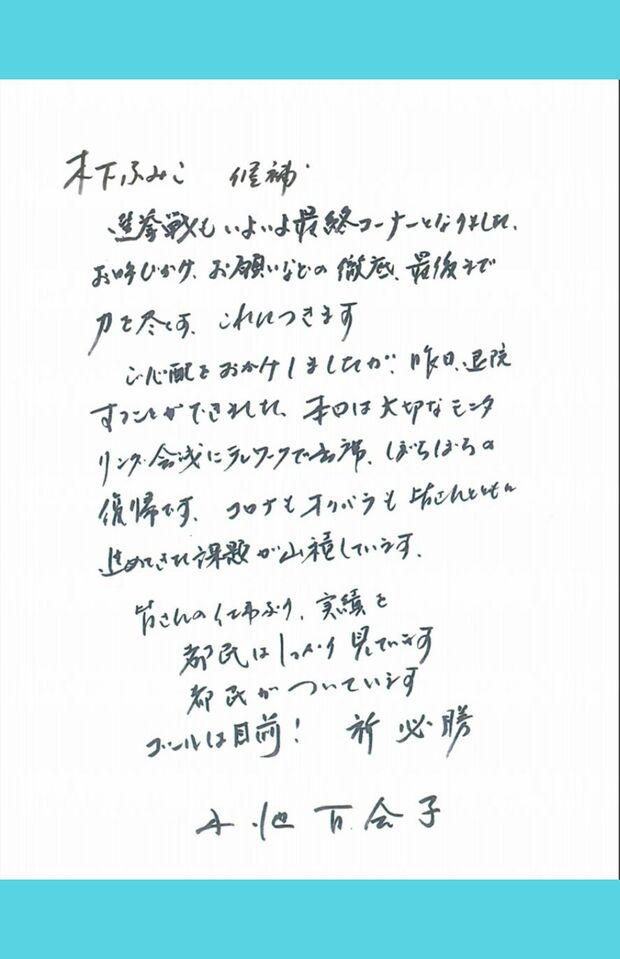 木下ふみこ 候補
選挙戦もいよいよ最終コーナーとなりました、
お呼びかけ、お願いなどの徹底、最後まで
力を尽くす、これにつきます
ご心配をおかけしましたが、昨日、退院
することができました、本日は大切なモニタ
リング会議にテレワークで出席、ぼちぼちの
復帰です、コロナもオリパラも皆さんとともに
進めてきた課題が山積しています、
皆さんの仕事ぶり、実績を
都民はしっかり見ています
都民がついています
ゴールは目前! 祈必勝
小池百合子